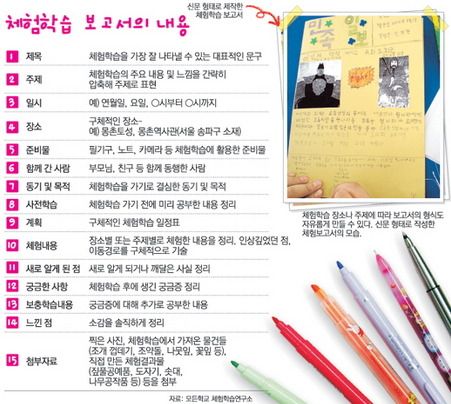 체험학습 보고서의 내용
신문 형태로 제작한
체험학습 보고서
1 제목 체험학습을 가장 잘 나타낼 수 있는 대표적인 문구
2 주제 체험학습의 주요 내용 및 느낌을 간략히
압축해 주제로 표현
3 일시 예) 연월일, 요일, ○시부터 ○시까지
4 장소 구체적인 장소-
예) 몽촌토성, 몽촌역사관(서울 송파구 소재)
5 준비물 필기구, 노트, 카메라 등 체험학습에 활용한 준비물
6 함께 간 사람 부모님, 친구 등 함께 동행한 사람
7 동기 및 목적 체험학습을 가기로 결심한 동기 및 목적
8 사전학습 체험학습 가기 전에 미리 공부한 내용 정리
9 계획 구체적인 체험학습 일정표
10 체험내용 장소별 또는 주제별로 체험한 내용을 정리, 인상깊었던 점,
이동경로를 구체적으로 기술
11 새로 알게 된 점 새로 알게 되거나 깨달은 사실 정리
12 궁금한 사항 체험학습 후에 생긴 궁금증 정리
13 보충학습내용 궁금증에 대해 추가로 공부한 내용
14 느낀 점 소감을 솔직하게 정리
15 첨부자료 찍은 사진, 체험학습에서 가져온 물건들
(조개 껍데기, 조약돌, 나뭇잎, 꽃잎 등),
직접 만든 체험결과물
(짚풀공예품, 도자기, 솟대,
나무공작품 등) 등을 첨부
민속
체험학습 장소나 주제에 따라 보고서의 형식도
자유롭게 만들 수 있다. 신문 형태로 작성한
체험보고서의 모습.
자료: 모든학교 체험학습연구소